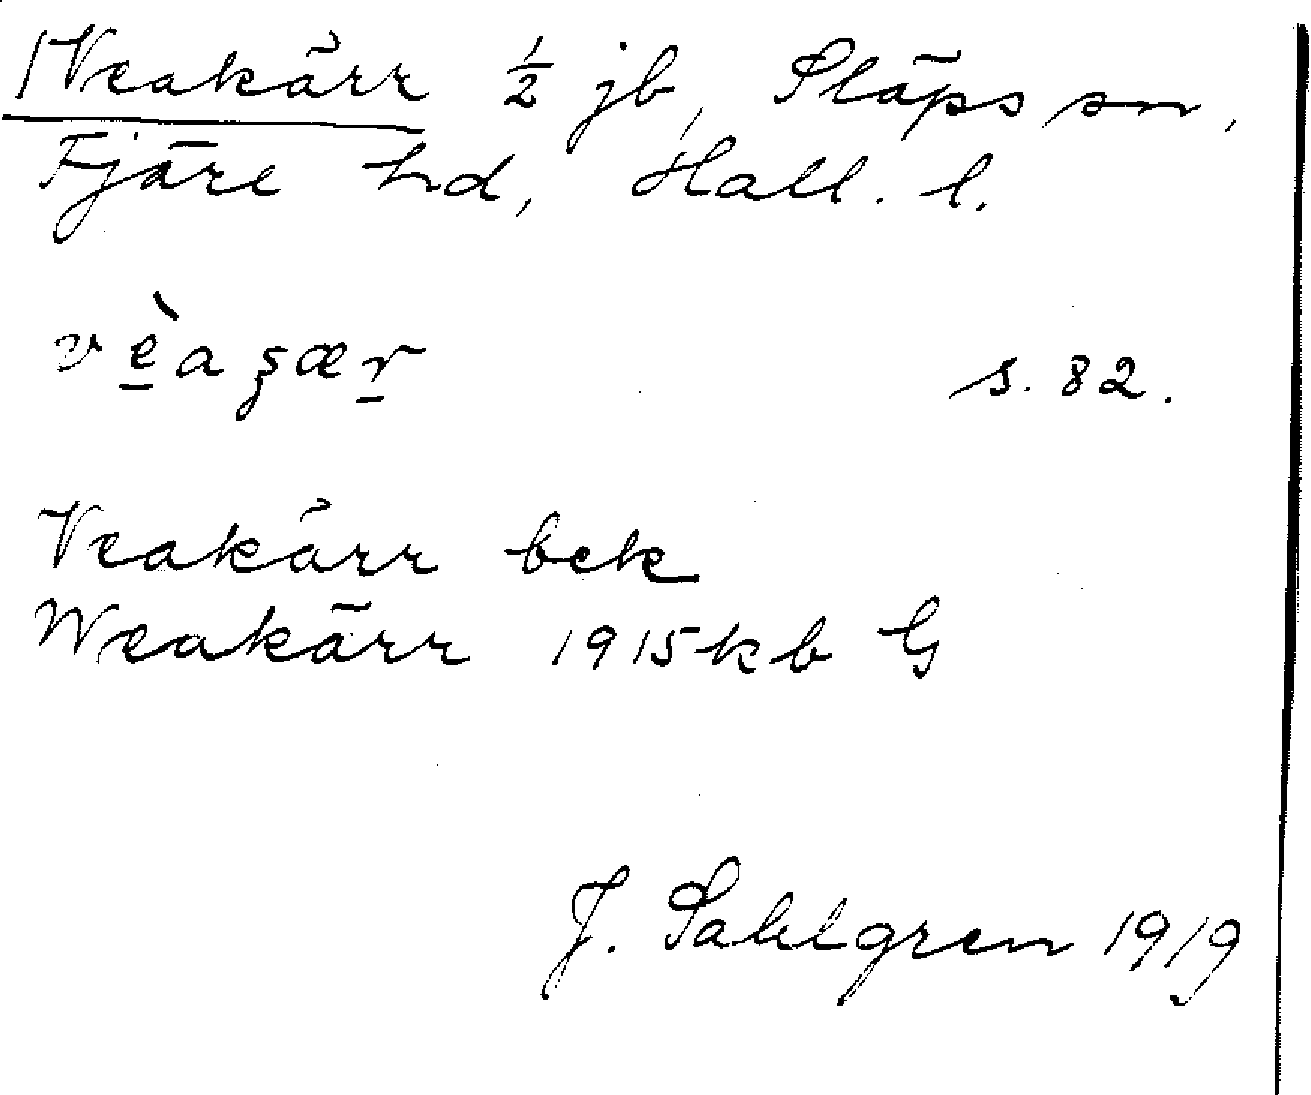 Veakärr ½ jb, Släps sn,
Fjäre hd, Hall. l.
s. 82.
Veakärr bek
Weakärr 1915 kb G
J. Sahlgren 1919